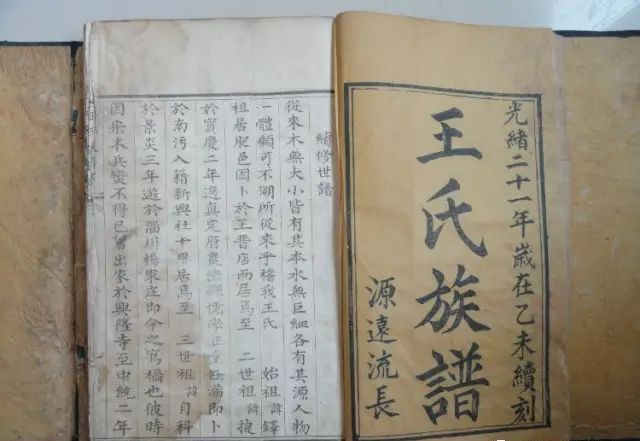 光緒二十一年歲在乙未續刻
王氏族譜
源遠流長
續修世譜
從來木無大小皆有其本水無巨細各有其源人物
一體顧可不溯所從來乎稽我王氏 始祖諱鐸
祖居肥邑因卜於王晋店而居焉至 二世祖諱
於寶慶二年選真定府 儒學正堂任滿即卜
於南汚入籍新興社十甲居焉至 三世祖諱自科
於景炎三年遊於淄川楊家庄即今之窎橋也彼時
因宋末兵變不得已 出家於興隆寺至中統二年